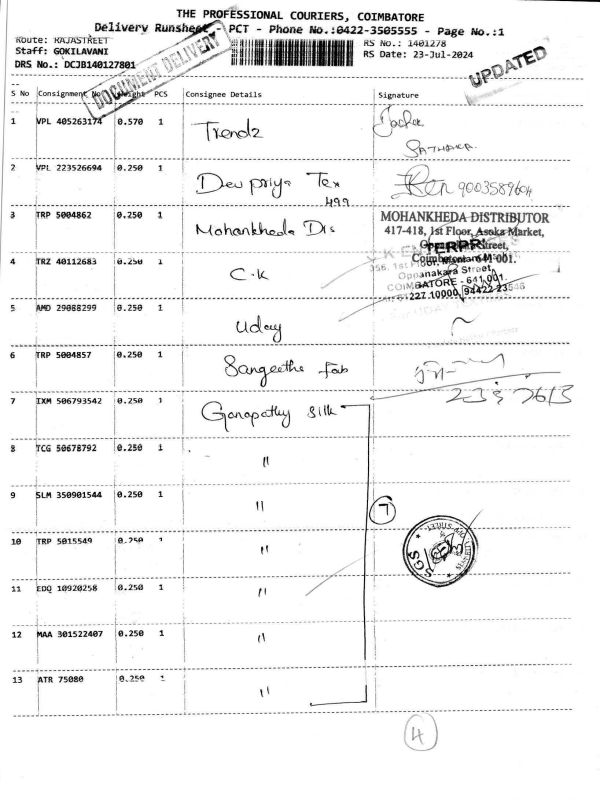 THE PROFESSIONAL COURIERS, COIMBATORE
Delivery Runsheet - PCT - Phone No.:0422-3505555 - Page No.:1
Route: RAJASTREET
RS No.: 1401278
Staff: GOKILAVANI
RS Date: 23-Jul-2024
DRS No.: DCJB140127801
DOCUMENT DELIVERY
UPDATED
S No Consignment No Weight PCS Consignee Details Signature
1 VPL 405263174 0.570 1 Trendz
SATHAKA.
2 VPL 223526694 0.250 1 Devpriya Tex 9003589604
499
3 TRP 5004862 0.250 1 Mohankheda Dis
MOHANKHEDA DISTRIBUTOR
417-418, 1st Floor, Asoka Market,
Street,
Coimbatore-641 001.
4 TRZ 40112683 0.250 1 C.K
K ENTERPR
356, 1st Floor,
Oppanakara Street,
COIMBATORE - 641 001.
5 AMD 29088299 0.250 1 Uday
6 TRP 5004857 0.250 1 Sangeetha Fab
7 IXM 506793542 0.250 1 Ganapathy Silk
8 TCG 50678792 0.250 1 "
9 SLM 350901544 0.250 1 "
7
10 TRP 5015549 0.250 1 "
SGS
11 EDQ 10920258 0.250 1 "
12 MAA 301522407 0.250 1 "
13 ATR 75080 0.250 1 "
4